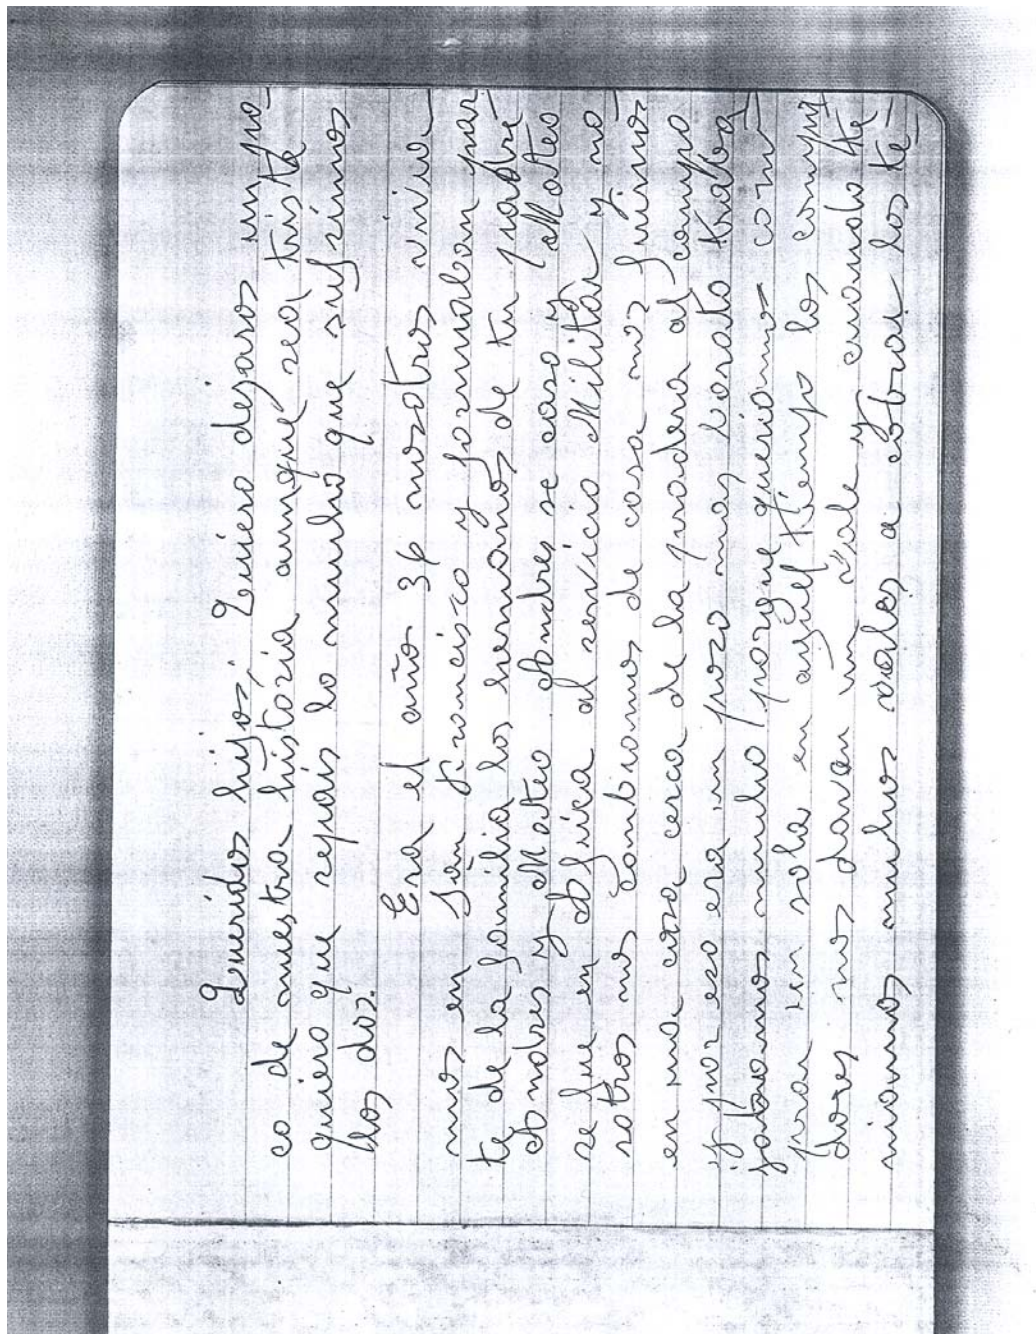 Queridos hijos: Quiero dejaros un po-
co de nuestra história aunqué sea tristé
quiero que sepais lo mucho que sufrimos
los dos.
Era el año 36 nosotros vivía-
mos en San Francisco y formaban par
te de la familia los hermanos de tu padré
Andres y Mateo Andres se caso y Mateo
se fue en Africa al cervicio Militar y no
sotros nos cambiamos de casa nos fuimos
en una casa cerca de la paradera al campo
y por eso era un pozo mas fondo traba
jabamos mucho porque queriamos com
prar una sola en aquell tiempo los compra
dores nos davan un vale y cuando te
niamos muchos vales a cobrar los te-